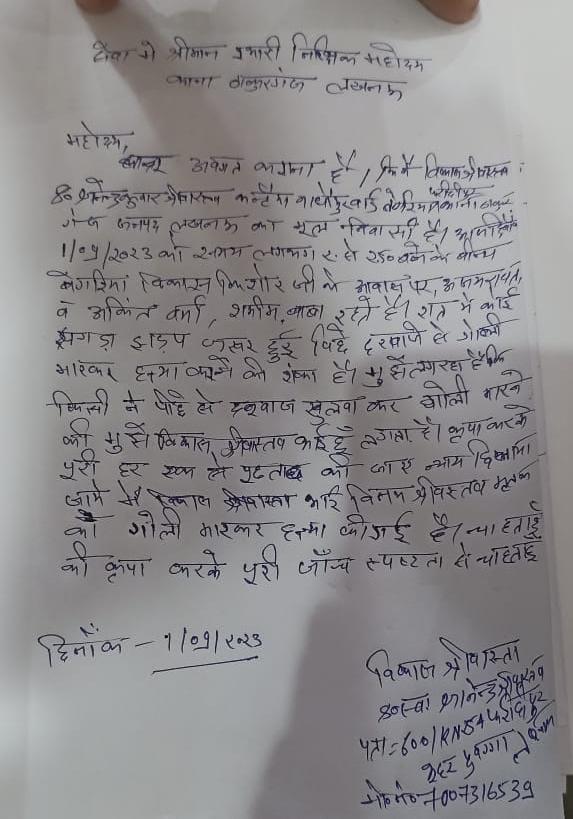 सेवा में श्रीमान प्रभारी निरिक्षक महोदय
थाना ठाकुरगंज लखनऊ
महोदय,
अवगत कराना है, कि मै विकास श्रीवास्तव
कन्हैया माधोपुर वार्ड
गंज जनपद लखनऊ का मूल निवासी है। आज दिनाँक
1/09/2023 को समय लगभग 2 से 2:50 बजे के बीच
बेगरिया विकास किशोर जी के आवास पर, अजय रावत,
व अंकित वर्मा, शमीम, बाबा रहते है। रात में कोई
झगड़ा झड़प जरूर हुई पिछे दरवाजे से गोली
मारकर हत्या करने की शंका है। मुझे लग रहा है कि
किसी ने पीछे से दरवाजा खुलवा कर गोली मारने
की मुझे विकास श्रीवास्तव भाई हूँ लगता है। कृपा करके
पूरी हर एक से पूछताछ की जाए न्याय दिलाया
जाये मै विकास श्रीवास्तव भाई विनय श्रीवास्तव मृतक
को गोली मारकर हत्या की गई है। चाहता हूँ
की कृपा करके पूरी जाँच स्पष्टता से चाहता हूँ
दिनाँक - 1/09/2023
विकास श्रीवास्तव
पता = 600/
मो० नं० 7007316539